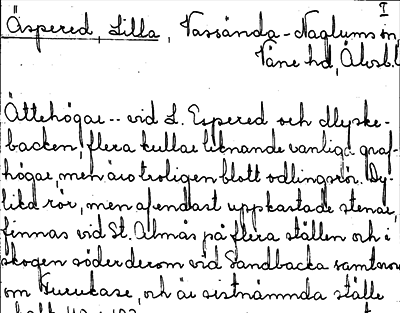 I
Äspered, Lilla, Vassända-Naglums sn,
Väne hd, Älvsb.l
Ättehögar -- vid L. Espered och
backen, flera kullar liknande vanliga graf-
högar, men äro troligen blott odlingsrör. Dy-
lika rör, men af endast uppkastade stenar,
finnas vid St. Almås på flera ställen och i
skogen söder derom vid Sandbacka samt
om Furukase, och är sistnämnda ställe